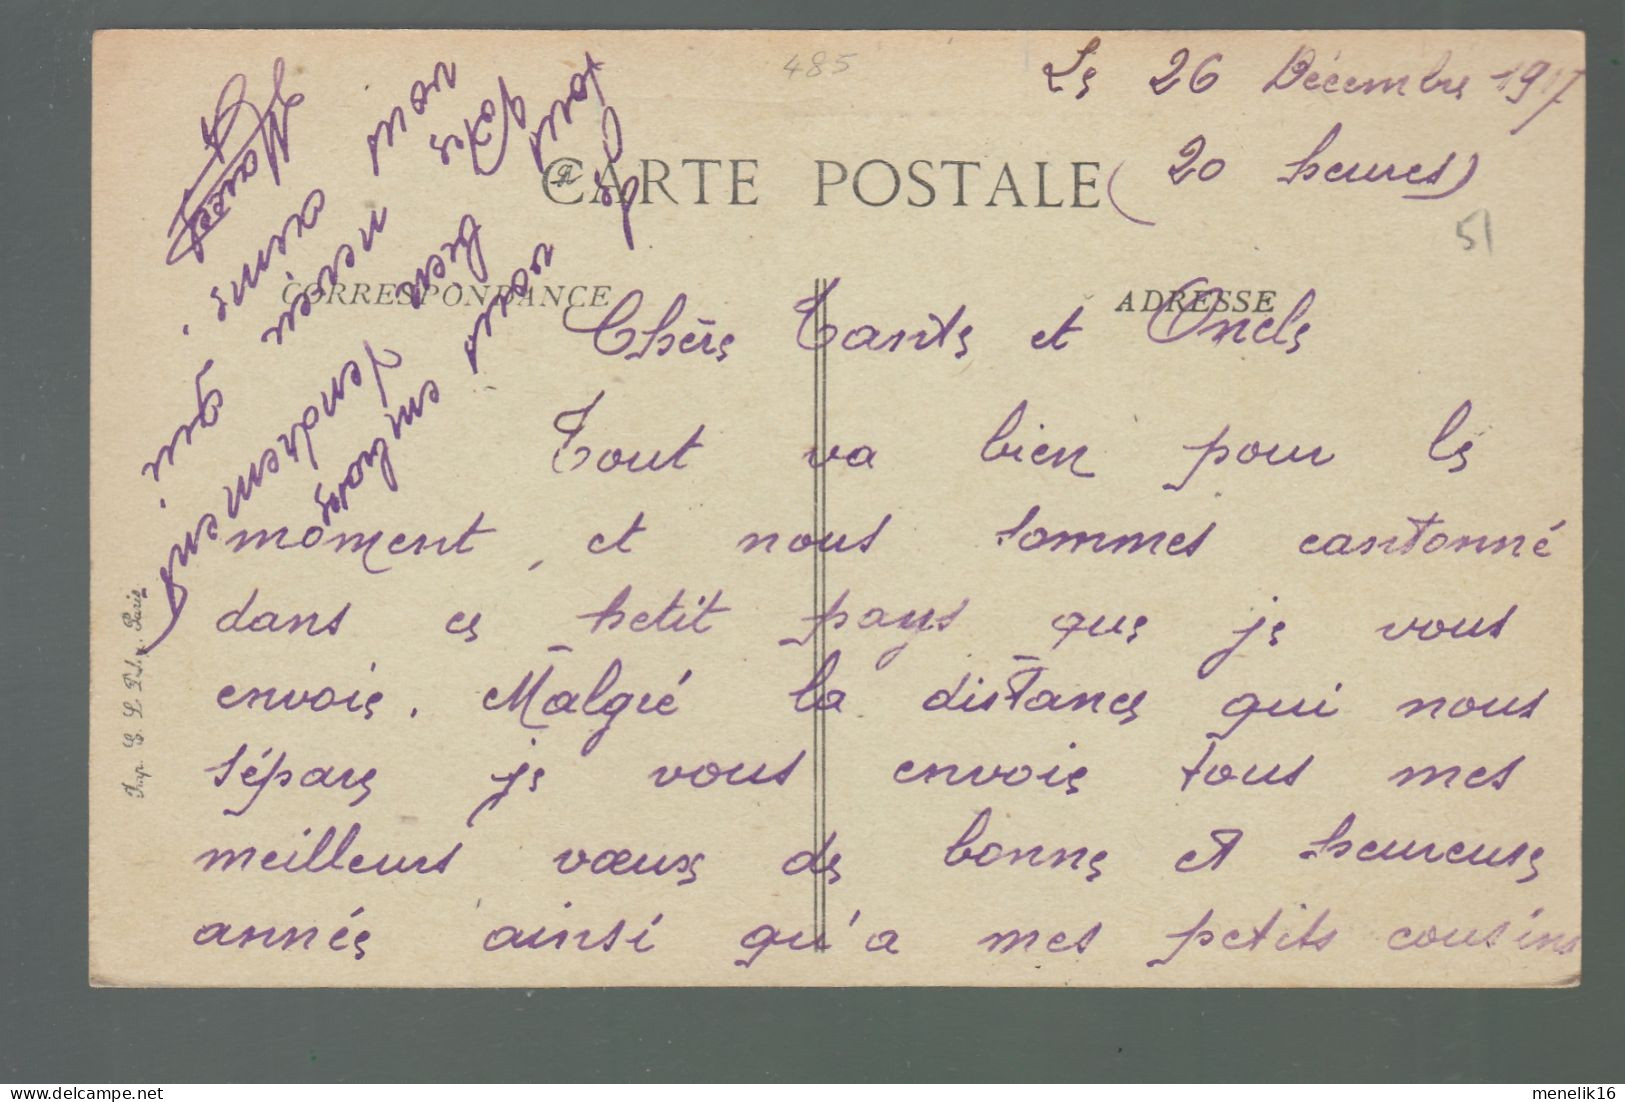 485
Le 26 Décembre 1917
(20 heures)
CARTE POSTALE
51
CORRESPONDANCE
ADRESSE
Chère Tante et Oncle
Tout va bien pour le
moment, et nous sommes cantonné
dans ce petit pays que je vous
envoie. Malgré la distance qui nous
sépare je vous envoie tous mes
meilleurs vœux de bonne et heureuse
année ainsi qu'a mes petits cousins
Je vous embrasse
tous bien tendrement
Votre neveu qui
vous aime.
Imp. Paris
menelik16